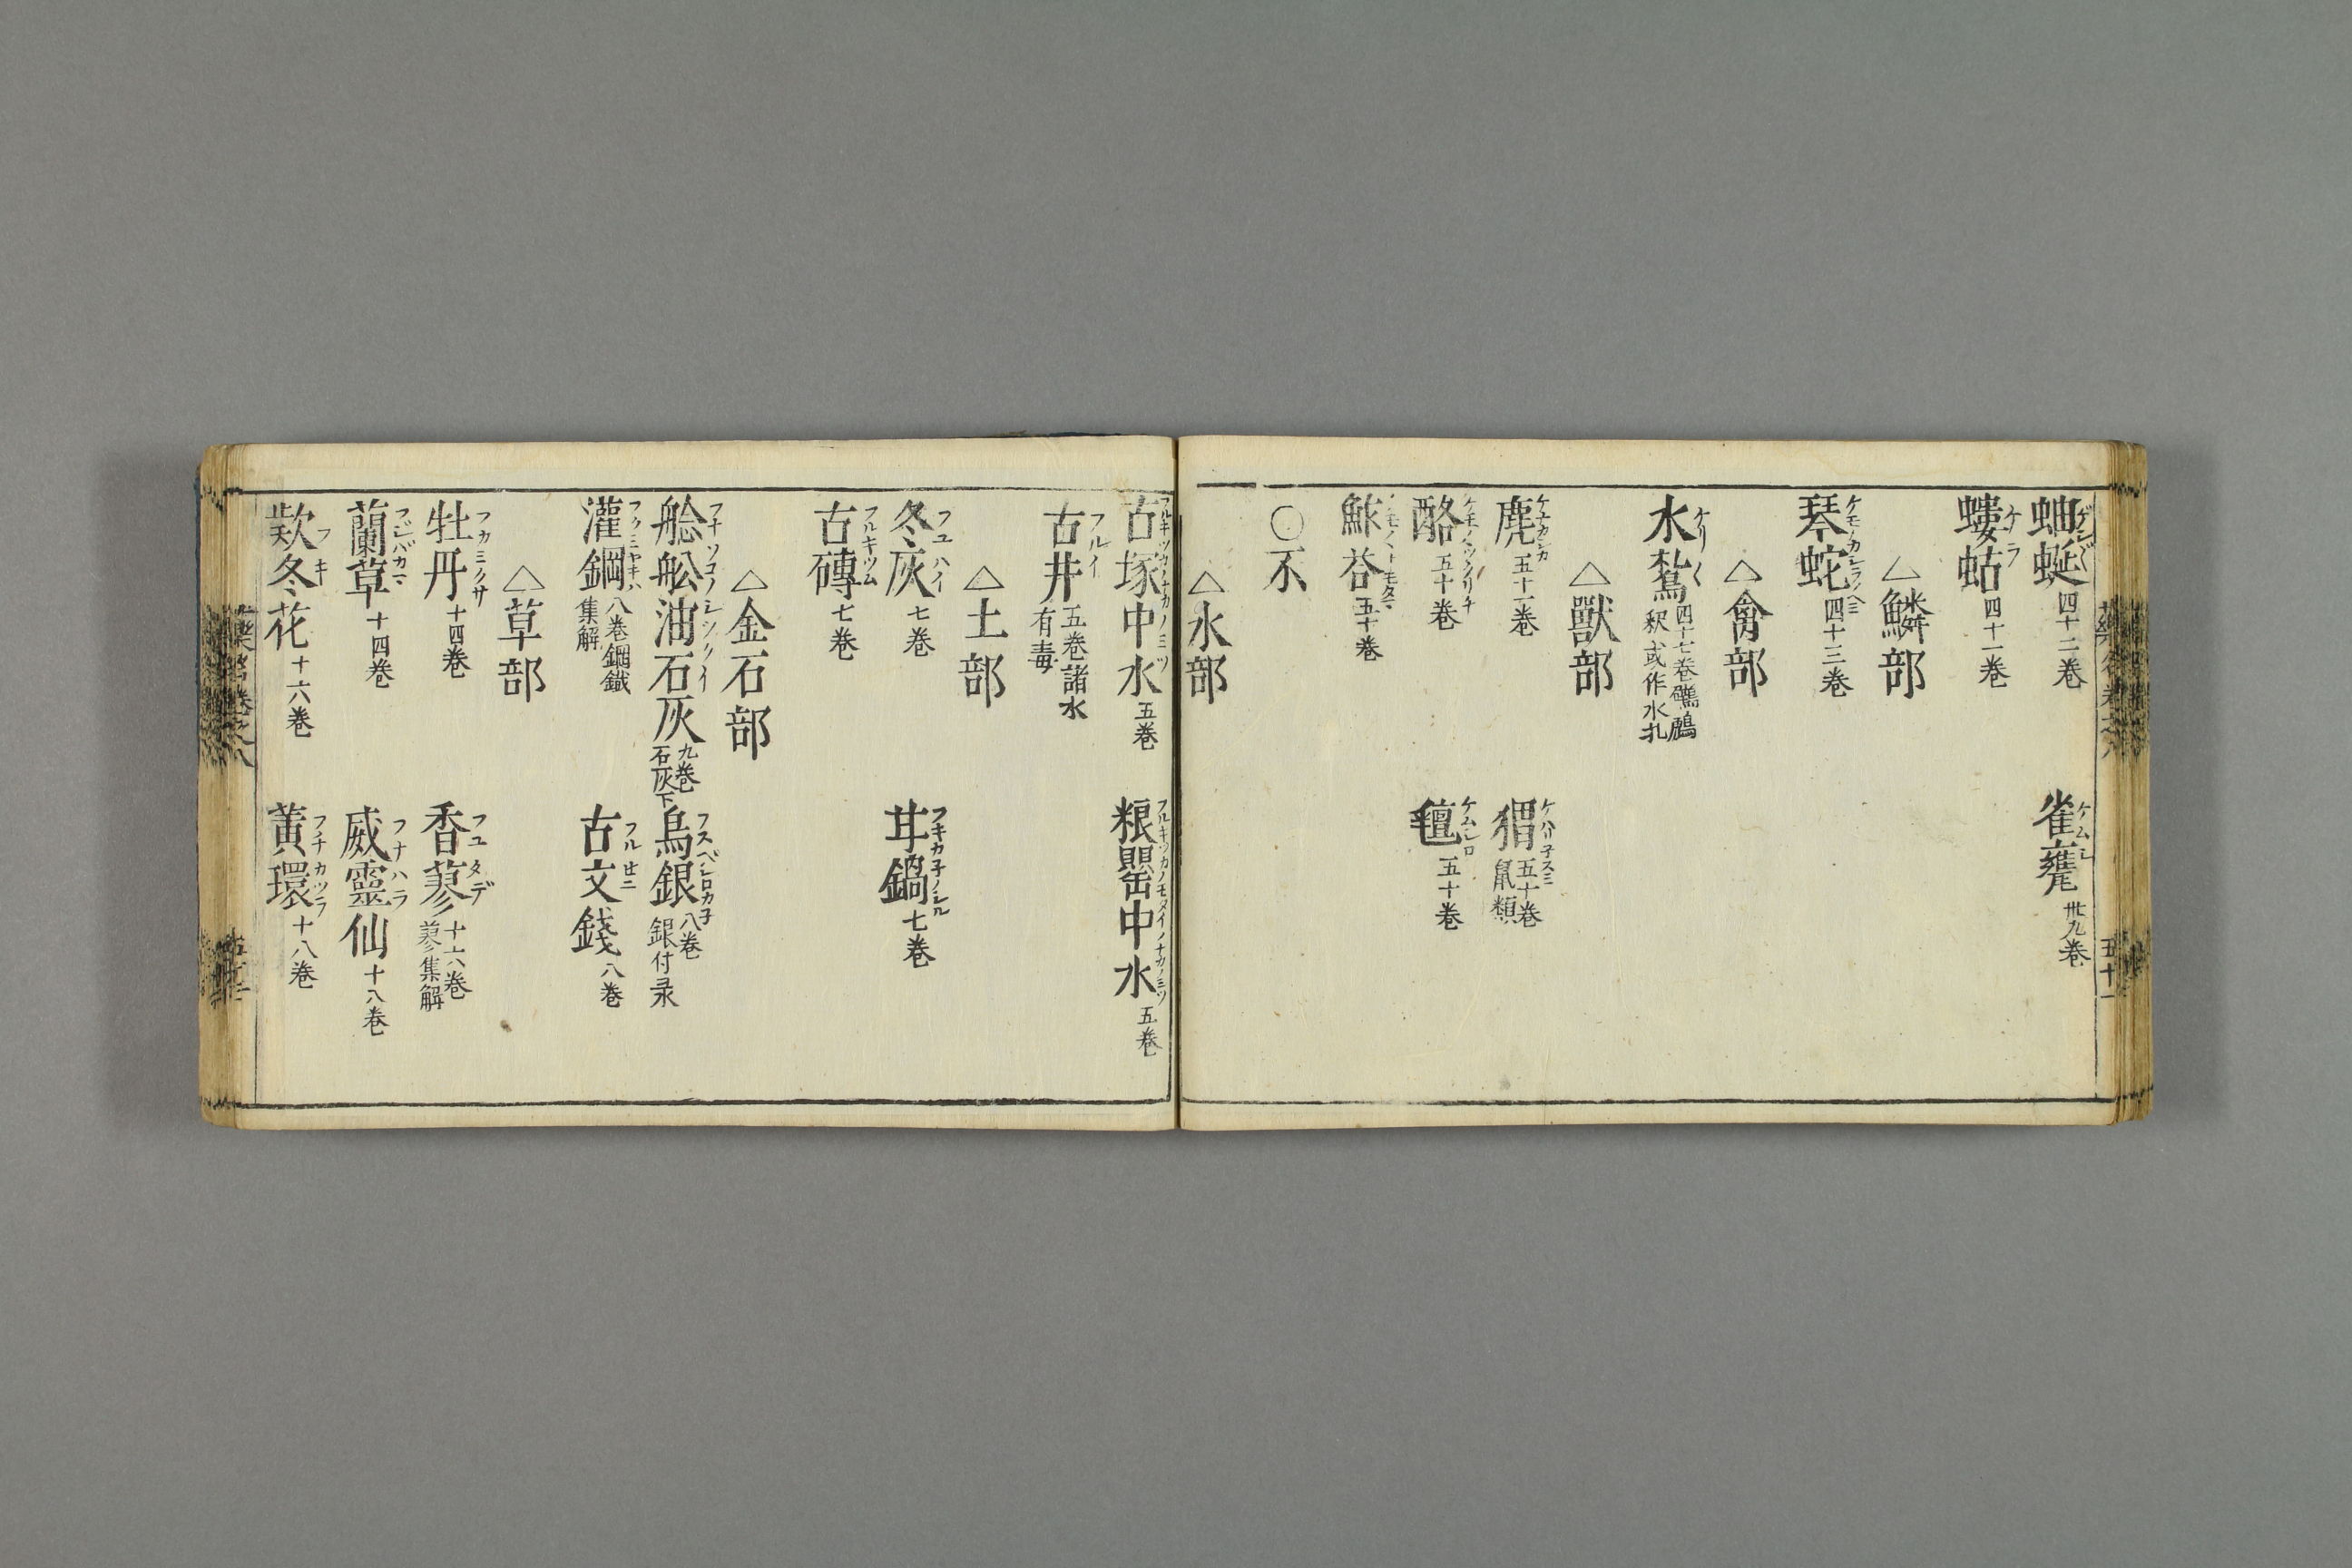 蚰蜒 ゲジ〳〵 四十二巻
雀甕 ケムシ 卅九巻
螻蛄 ケラ 四十一巻
△鱗部
琴蛇 四十三巻
△禽部
水𪆐 ケリ〳〵 四十七巻
釈 或作水札
△獸部
麂 五十一巻
猬 五十一巻 鼠類
酪 ケモノヽツクリチ 五十巻
氊 ケムシロ 五十巻
鮓荅 五十巻
○不
△水部
古塚中水 フルキツカノナカノミツ 五巻
粮罌中水 五巻
古井 フルイ 五巻諸水
有毒
△土部
冬灰 フユハイ 七巻
甘鍋 フキカ子ノシル 七巻
古磚 フルキツム 七巻
△金石部
艌舩油石灰 フナソコノシツクイ 九巻
石灰下
烏銀 フスベシロカ子 八巻
銀付录
灌鋼 フクミヤキバ 八巻鋼鐵
集解
古文錢 フルせニ 八巻
△草部
牡丹 フカミクサ 十四巻
香蓼 フユタデ 十六巻
蓼集解
蘭草 フジバカマ 十四巻
威靈仙 フナハラ 十八巻
欵冬花 フキ 十六巻
黄環 フチカツラ 十八巻
五十一